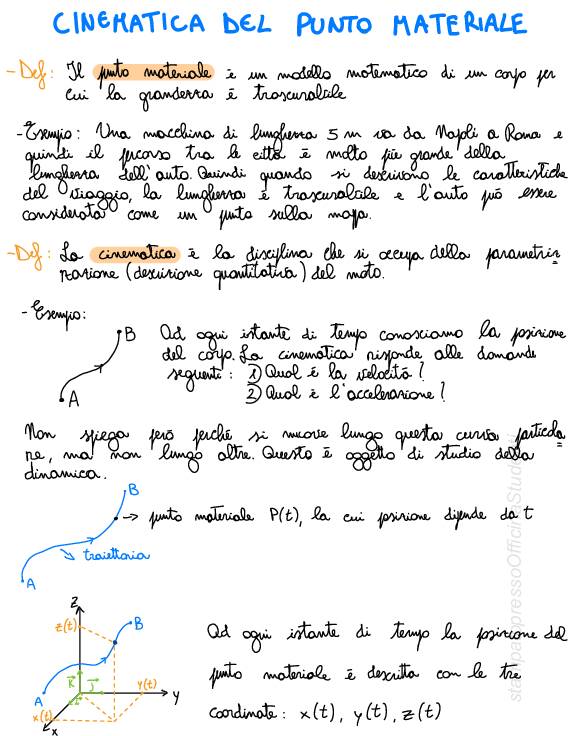 CINEMATICA DEL PUNTO MATERIALE
- Def: Il punto materiale è un modello matematico di un corpo per
cui la grandezza è trascurabile
- Esempio: Una macchina di lunghezza 5 m va da Napoli a Roma e
quindi il percorso tra le città è molto più grande della
lunghezza dell'auto. Quindi quando si descrivono le caratteristiche
del viaggio, la lunghezza è trascurabile e l'auto può essere
considerata come un punto sulla mappa.
- Def: La cinematica è la disciplina che si occupa della parametriz
zazione (descrizione quantitativa) del moto.
- Esempio:
B
A
Ad ogni istante di tempo conosciamo la posizione
del corpo. La cinematica risponde alle domande
seguenti: 1) Qual è la velocità?
2) Qual è l'accelerazione?
Non spiega però perché si muove lungo questa curva particola
re, ma non lungo altre. Questo è oggetto di studio della
dinamica.
B
→ punto materiale P(t), la cui posizione dipende da t
traiettoria
A
z
z(t)
B
K
J
i
A
y(t)
y
x(t)
x
Ad ogni istante di tempo la posizione del
punto materiale è descritta con le tre
coordinate: x(t), y(t), z(t)
stampatopressoOfficinaStudenti